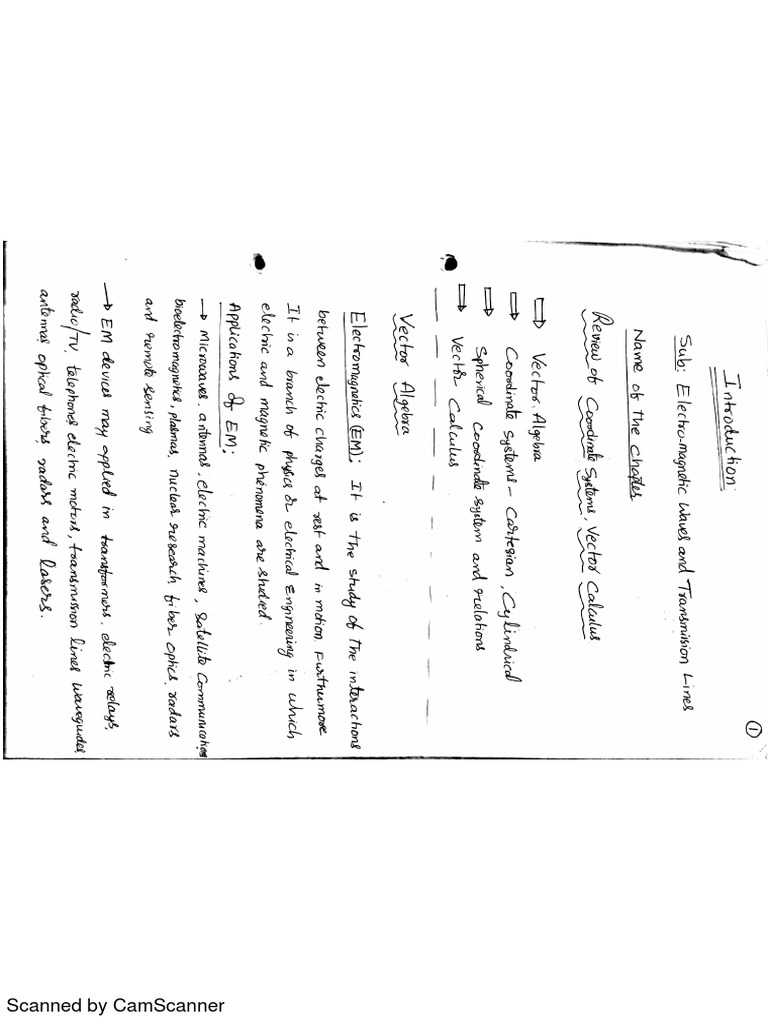 ①
Introduction:
Sub: Electro-magnetic Waves and Transmission Lines
Name of the chapter
Review of Coordinate Systems, Vector Calculus
⇨ Vector Algebra
⇨ Coordinate Systems - Cartesian, Cylindrical
⇨ Spherical Coordinate system and relations
⇨ Vector Calculus
Vector Algebra
Electromagnetics (EM): It is the study of the interactions
between electric charges at rest and in motion. Furthurmore
It is a branch of physics or electrical Engineering in which
electric and magnetic phenomena are studied.
Applications of EM:
→ Microwaves, antennas, electric machines, satellite communication
bioelectromagnetics, plasmas, nuclear research, fiber optics, radars
and remote sensing
→ EM devices may applied in transformers, electric relays,
radio/TV, telephones electric motors, transmission lines waveguides,
antennas optical fibers, radars and lasers.
Scanned by CamScanner